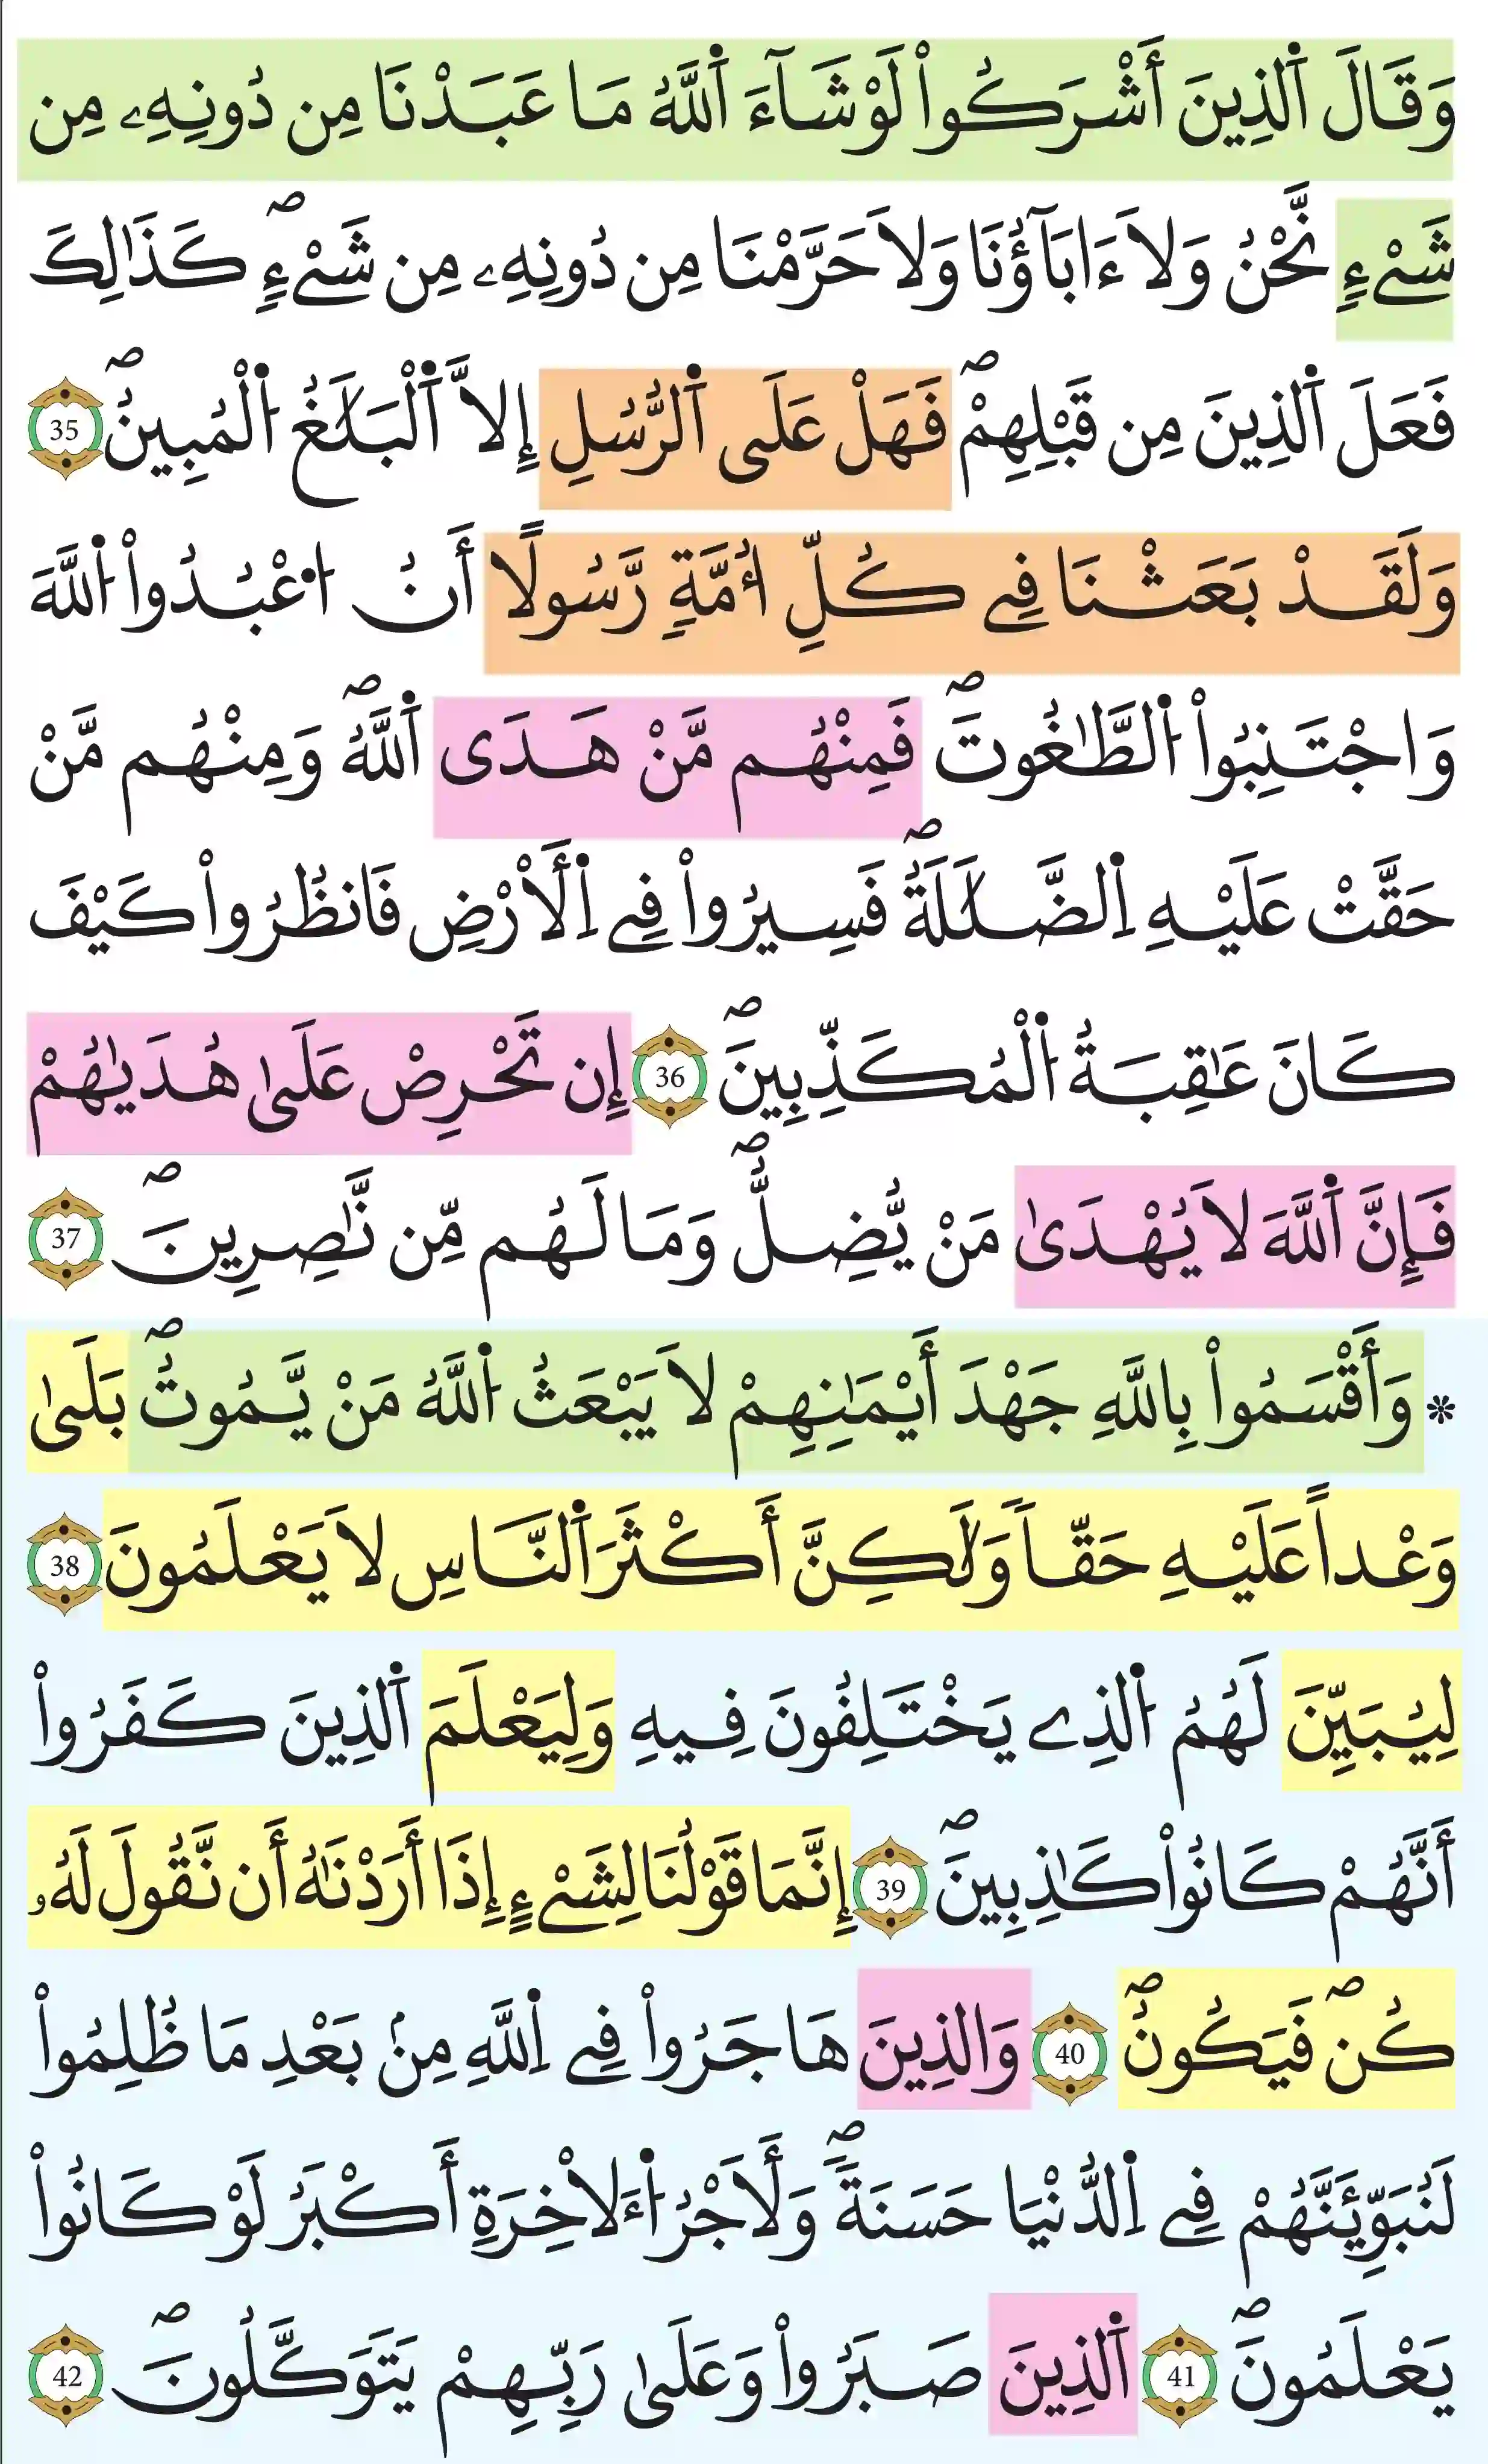 وَقَالَ اَ۬لذِينَ أَشْرَكُواْ لَوْ شَآءَ اَ۬للَّهُ مَا عَبَدْنَا مِن دُونِهِۦ مِن
شَےْءٍ نَّحْنُ وَلَا ءَابَآؤُنَا وَلَا حَرَّمْنَا مِن دُونِهِۦ مِن شَےْءٍۖ كَذَٰلِكَ
فَعَلَ اَ۬لذِينَ مِن قَبْلِهِمْۖ فَهَلْ عَلَى اَ۬لرُّسُلِ إِلَّا اَ۬لْبَلَٰغُ اُ۬لْمُبِينُۖ 35
وَلَقَدْ بَعَثْنَا فِے كُلِّ أُمَّةٍ رَّسُولًا أَنُ اُ۟عْبُدُواْ اُ۬للَّهَ
وَاجْتَنِبُواْ اُ۬لطَّٰغُوتَۖ فَمِنْهُم مَّنْ هَدَى اَ۬للَّهُۖ وَمِنْهُم مَّنْ
حَقَّتْ عَلَيْهِ اِ۬لضَّلَٰلَةُۖ فَسِيرُواْ فِے اِ۬لَارْضِ فَانظُرُواْ كَيْفَ
كَانَ عَٰقِبَةُ اُ۬لْمُكَذِّبِينَۖ 36 إِن تَحْرِصْ عَلَىٰ هُدَيٰهُمْ
فَإِنَّ اَ۬للَّهَ لَا يُهْدَىٰ مَنْ يُّضِلُّۖ وَمَا لَهُم مِّن نَّٰصِرِينَۖ 37
* وَأَقْسَمُواْ بِاللَّهِ جَهْدَ أَيْمَٰنِهِمْ لَا يَبْعَثُ اُ۬للَّهُ مَنْ يَّمُوتُۖ بَلَىٰ
وَعْداً عَلَيْهِ حَقّاً وَلَٰكِنَّ أَكْثَرَ اَ۬لنَّاسِ لَا يَعْلَمُونَ 38
لِيُبَيِّنَ لَهُمُ اُ۬لذِے يَخْتَلِفُونَ فِيهِ وَلِيَعْلَمَ اَ۬لذِينَ كَفَرُواْ
أَنَّهُمْ كَانُواْ كَٰذِبِينَۖ 39 إِنَّمَا قَوْلُنَا لِشَےْءٍ إِذَا أَرَدْنَٰهُ أَن نَّقُولَ لَهُۥ
كُنۖ فَيَكُونُۖ 40 وَالذِينَ هَاجَرُواْ فِے اِ۬للَّهِ مِنۢ بَعْدِ مَا ظُلِمُواْ
لَنُبَوِّئَنَّهُمْ فِے اِ۬لدُّنْيَا حَسَنَةًۖ وَلَأَجْرُ اُ۬ءَلَاخِرَةِ أَكْبَرُ لَوْ كَانُواْ
يَعْلَمُونَۖ 41 اَ۬لذِينَ صَبَرُواْ وَعَلَىٰ رَبِّهِمْ يَتَوَكَّلُونَۖ 42